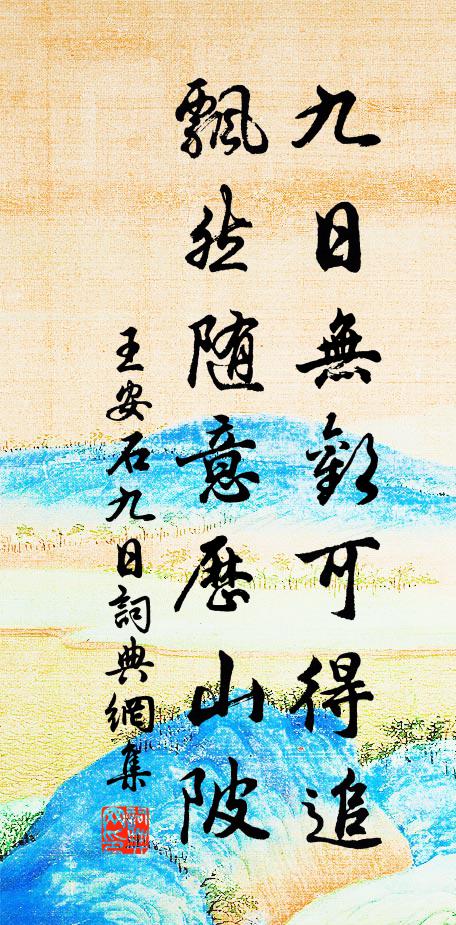 九日無歡可得追
飄然随意歷山陂
王安石九日詞典網集